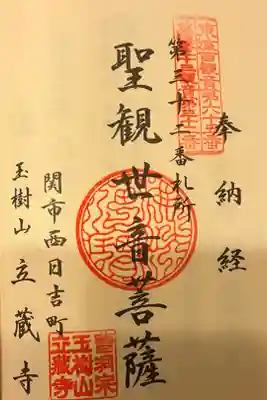 奉納経
第三十二番札所
聖観世音菩薩
関市西日吉町
玉樹山 立蔵寺
曹洞宗
玉樹山
立藏寺